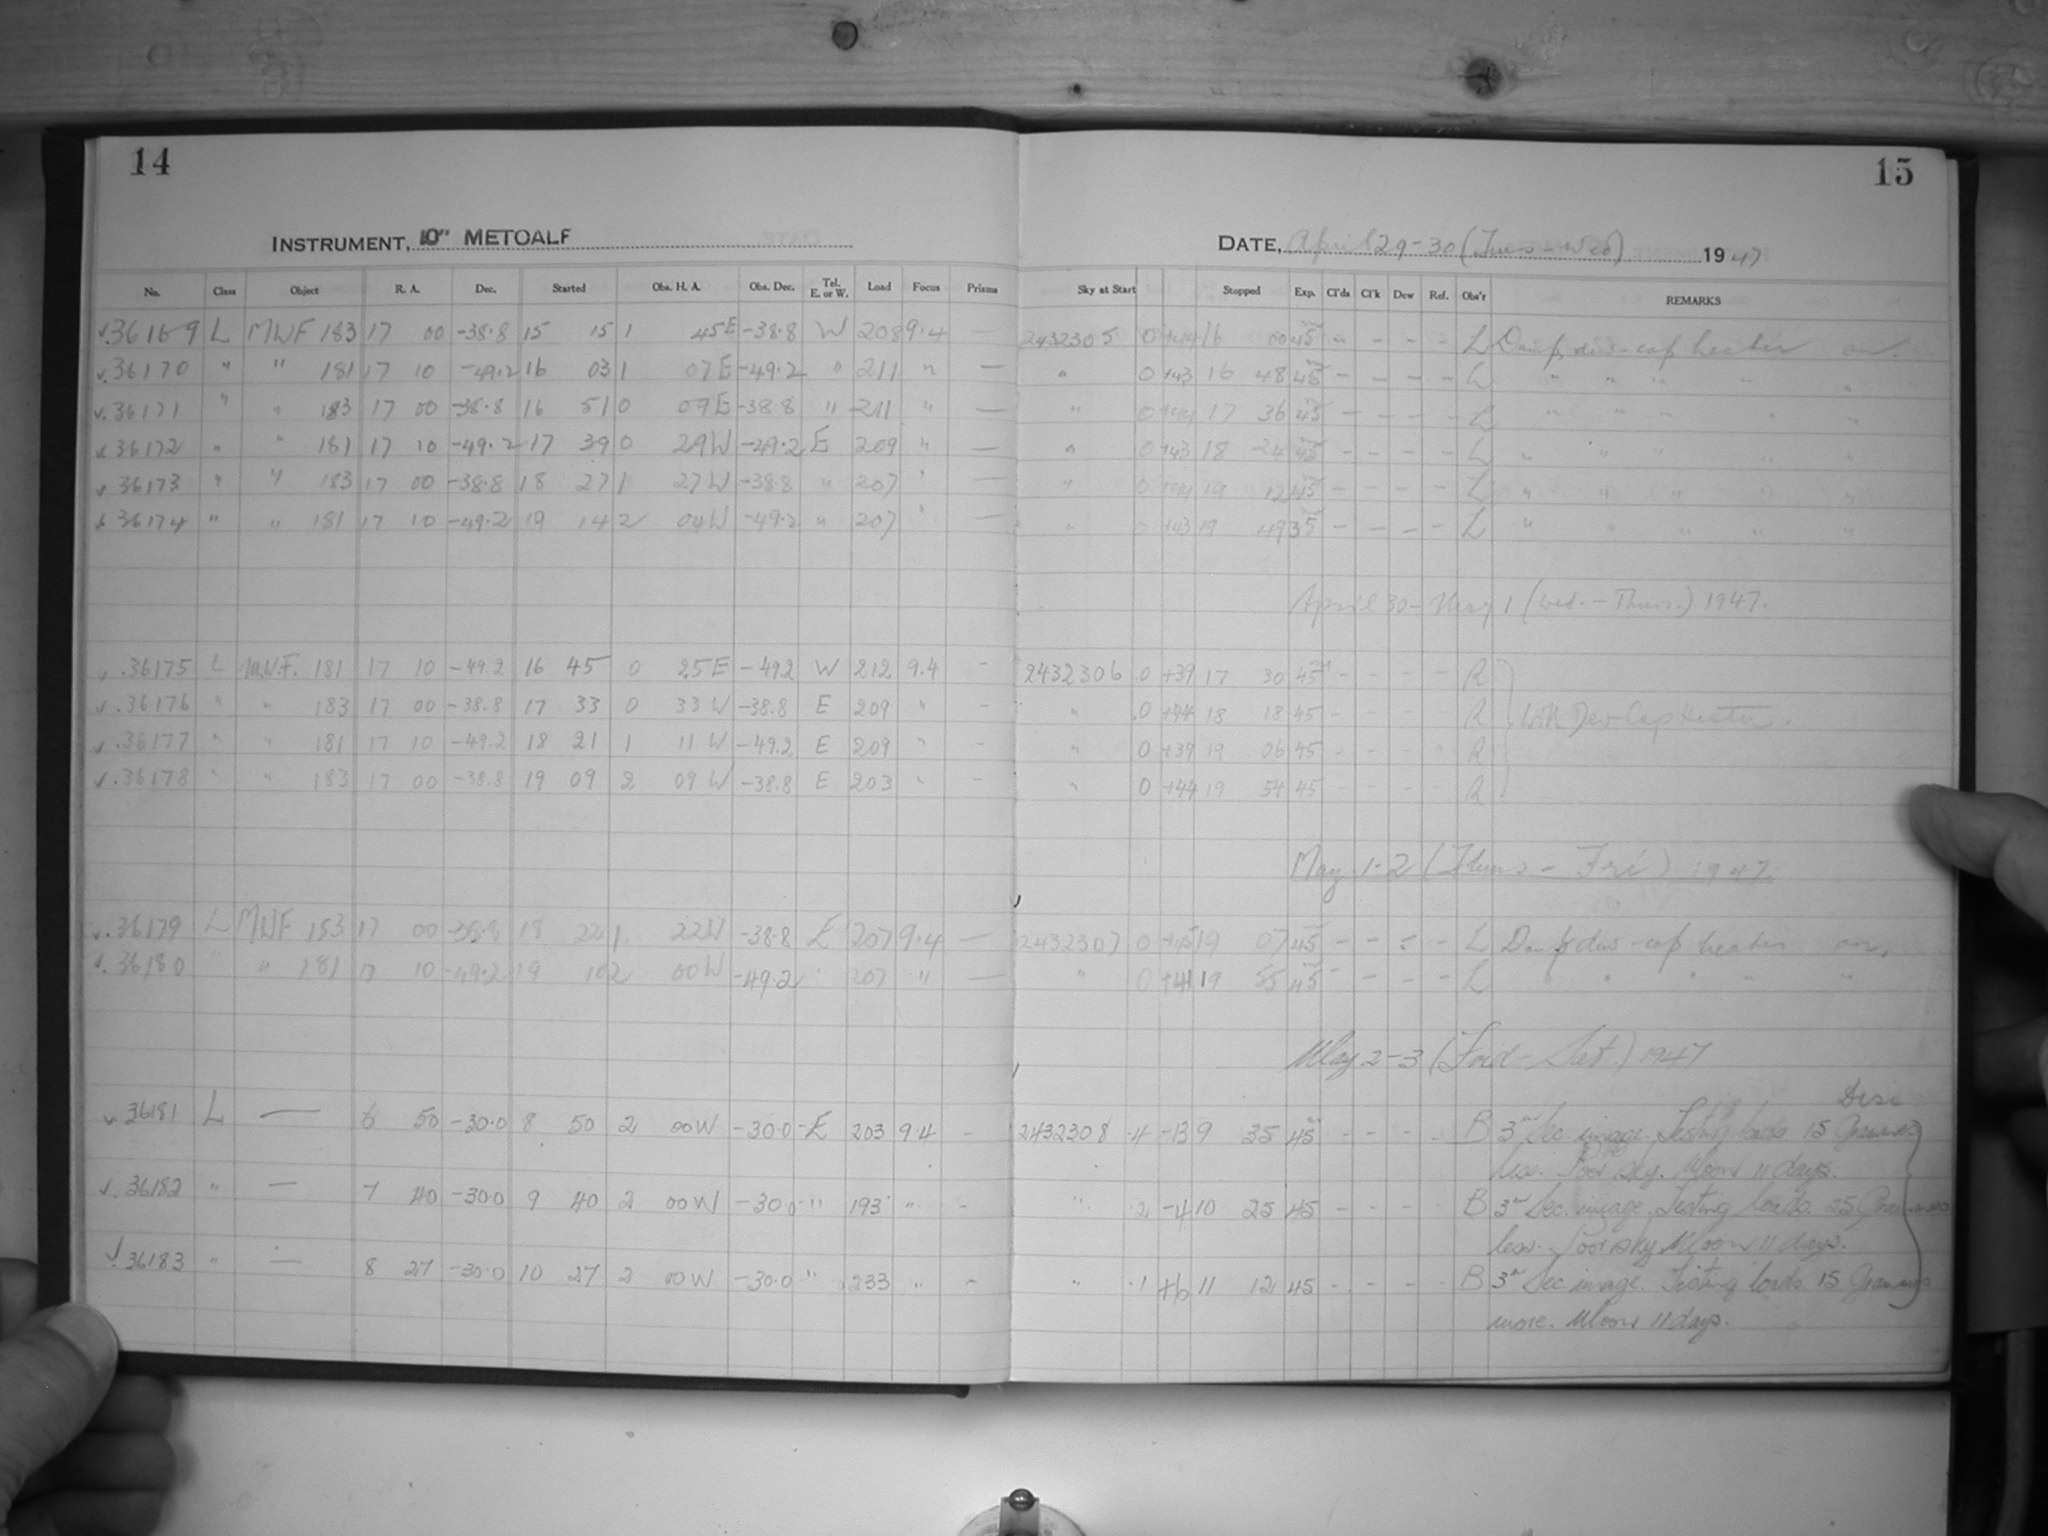 14
15
INSTRUMENT, 10" METCALF
DATE, April 29-30 (Tues - Wed) 1947
No. Class Object R. A. Dec. Started Obs. H. A. Obs. Dec. Tel. E. or W. Load Focus Prisms Sky at Start Stopped Exp. Cl'ds Cl'k Dew Ref. Obs'r REMARKS
36169 L MWF 183 17 00 -38.8 15 15 1 45E -38.8 W 208 9.4 — 2432305 0 +44 16 00 45 - - - - L Damp dew-cap heater on.
36170 " " 181 17 10 -49.2 16 03 1 07E -49.2 " 211 " — " 0 +43 16 48 45 - - - - L " " " " "
36171 " " 183 17 00 -38.8 16 51 0 09E -38.8 " 211 " — " 0 +44 17 36 45 - - - - L " " " " "
36172 " " 181 17 10 -49.2 17 39 0 29W -49.2 E 209 " — " 0 +43 18 24 45 - - - - L " " " " "
36173 " " 183 17 00 -38.8 18 27 1 27W -38.8 " 207 " — " 0 +44 19 12 45 - - - - L " " " " "
36174 " " 181 17 10 -49.2 19 14 2 04W -49.2 " 207 " — " 0 +43 19 49 35 - - - - L " " " " "
April 30 - May 1 (Wed. - Thurs.) 1947.
36175 L M.W.F. 181 17 10 -49.2 16 45 0 25E -49.2 W 212 9.4 - 2432306 0 +39 17 30 45 - - - - R
36176 " " 183 17 00 -38.8 17 33 0 33W -38.8 E 209 " - " 0 +44 18 18 45 - - - - R With Dew Cap Heater.
36177 " " 181 17 10 -49.2 18 21 1 11W -49.2 E 209 " - " 0 +39 19 06 45 - - - - R
36178 " " 183 17 00 -38.8 19 09 2 09W -38.8 E 203 " - " 0 +44 19 54 45 - - - - R
May 1-2 (Thurs - Fri) 1947.
36179 L MWF 183 17 00 -38.8 18 22 1 22W -38.8 E 207 9.4 — 2432307 0 +45 19 07 45 - - - - L Damp dew-cap heater on.
36180 " 181 17 10 -49.2 19 10 2 00W -49.2 207 " — " 0 +41 19 55 45 - - - - L " " " "
May 2-3 (Frid - Sat.) 1947
36181 L — 6 50 -30.0 8 50 2 00W -30.0 E 203 9.4 - 2432308 .4 -13 9 35 45 - - - - B 3rd Sec. image. Testing loads 15 Grammes
less. Poor sky. Moon 11 days.
36182 " — 7 40 -30.0 9 40 2 00W -30.0 " 193 " - " .2 -4 10 25 45 - - - - B 3rd Sec. image. Testing loads 25 Grammes
less. Poor sky Moon 11 days.
36183 " — 8 27 -30.0 10 27 2 00W -30.0 " 233 " - " .1 +6 11 12 45 - - - - B 3rd Sec. image. Testing loads 15 Grammes
more. Moon 11 days.